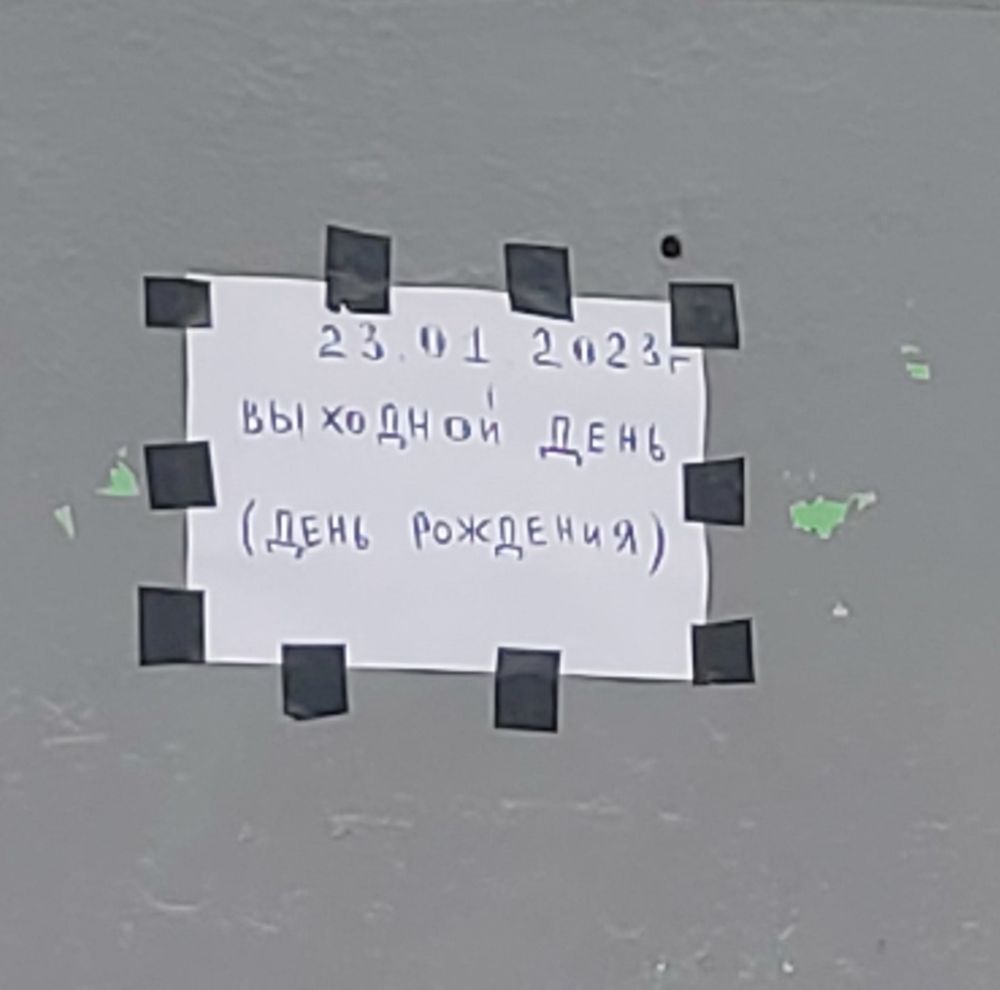 23.01 2023г
ВЫХОДНОЙ ДЕНЬ
(ДЕНЬ РОЖДЕНИЯ)